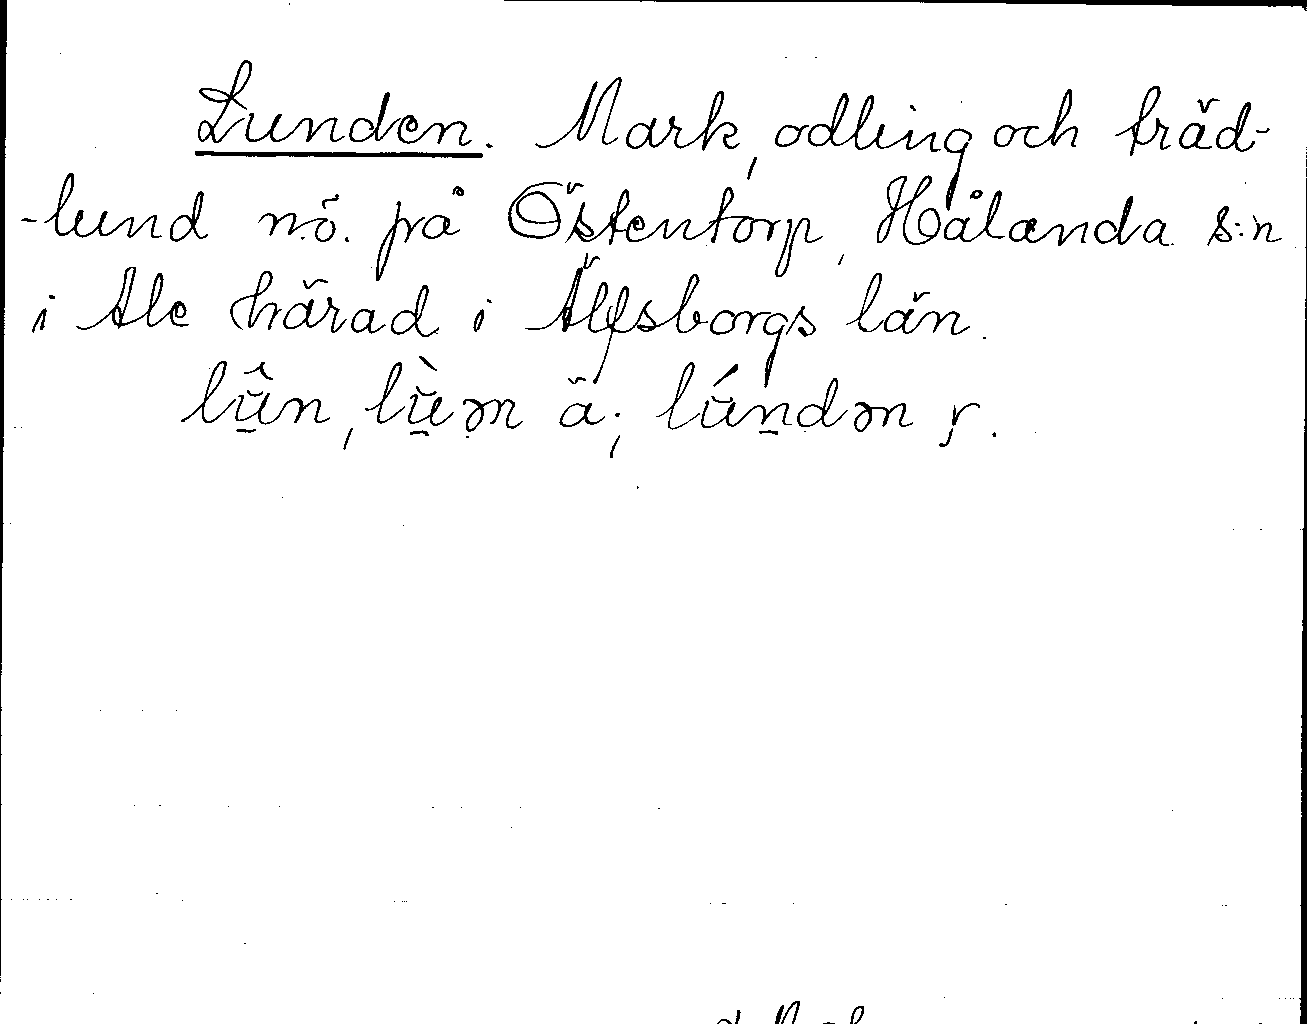 Lunden. Mark, odling och träd-
-lund nö. på Östentorp, Hålanda s:n
i Ale härad i Älfsborgs län.
lŭ̂n, lŭ̀ən ä.; lŭ́ndən y.